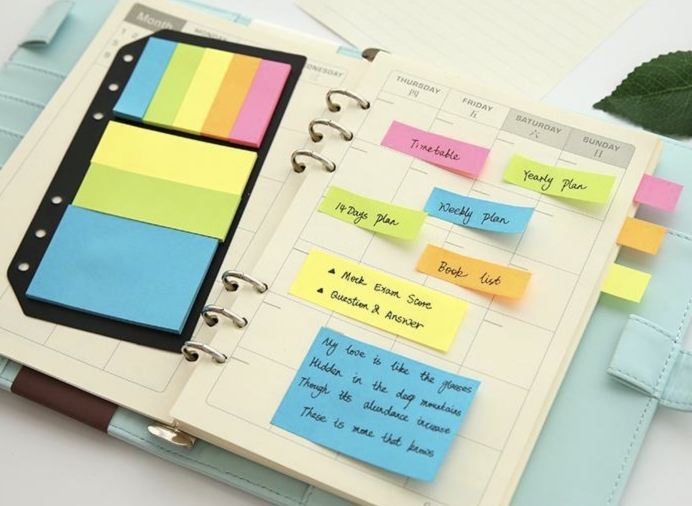 Month
MONDAY
THURSDAY
四
FRIDAY
五
SATURDAY
六
SUNDAY
日
Timetable
Yearly plan
14 Days plan
Weekly plan
Book list
▲ Mock Exam Score
▲ Question & Answer
My love is like the grasses
Hidden in the deep mountains
Though its abundance increase
There is none that knows